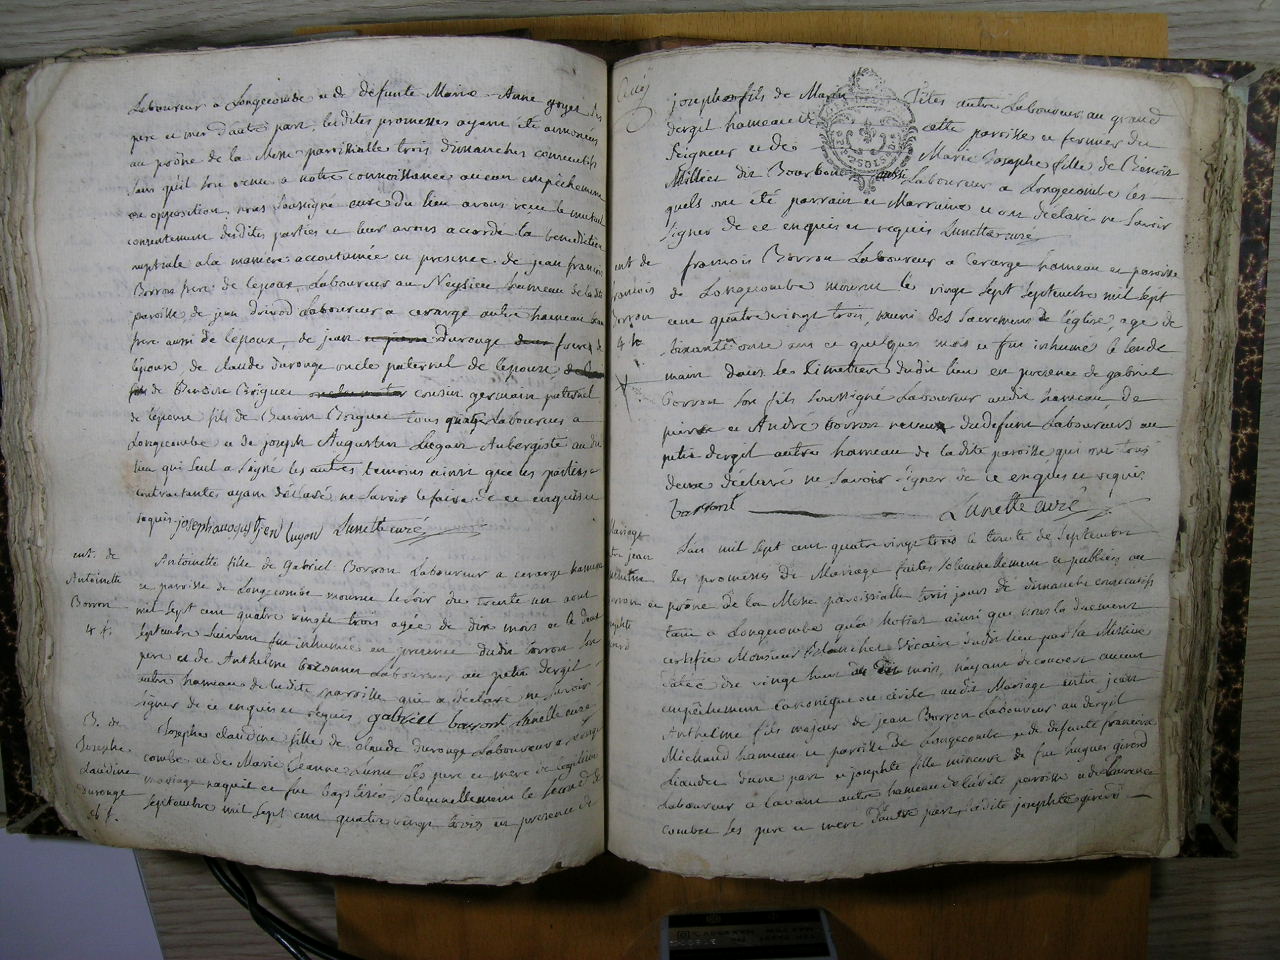 Laboureur a Longecombe et de defunte Marie Anne goyet ses
pere et mere d'autre part, lesdites promesses ayant été annoncées
au prône de la Messe paroissialle trois dimanches consecutifs
sans qu'il soit venu a notre connoissance aucun empêchement
ou opposition, nous soussigné curé du lieu avons reçu le mutuel
consentement desdites parties et leur avons accordé la benediction
nuptiale a la maniere accoutumée en presence de jean francois
Borron pere de l'epoux, Laboureur au Neysieu hameau de la dite
paroisse, de jean Laboureur a cerarge autre hameau
frere aussi de l'epoux, de jean durouge frere de
l'épouse, de claude durouge oncle paternel de l'epouse,
fils de Benoite Brigues cousin germain paternel
de l'epouse fils de Benoit tous quatre Laboureurs a
Longecombe et de joseph Augustin Aubergiste au dit
lieu qui seul a signé les autres temoins ainsi que les parties
contractantes ayant déclaré ne savoir le faire de ce enquis et
requis. joseph augustjen Lunette curé
ent. de
Antoinette
Borron
Antoinette fille de Gabriel Borron Laboureur a cerarge hameau
et paroisse de Longecombe mourut le soir du trente un aout
mil sept cent quatre vingt trois agée de dix mois et le deux
septembre suivant fut inhumée en presence dudit borron son
pere et de Anthelme Laboureur au petit dergit
autre hameau de la dite paroisse qui a déclaré ne savoir
signer de ce enquis et requis, gabriel barront Lunette curé
B. de
Josephe
claudine
durouge
Josephe claudine fille de claude durouge Laboureur a Longe
combe et de Marie Jeanne ses pere et mere de legitime
mariage naquit et fut baptisée solemnellement le second de
septembre mil sept cent quatre vingt trois en presence de
joseph fils de Marin autre Laboureur au grand
dergit hameau de cette paroisse et fermier du
Seigneur et de Marie Josephe fille de Benoit
Millier dit Bourbon aussi Laboureur a Longecombe les
quels ont été parrain et Marraine et ont declaré ne savoir
signer de ce enquis et requis Lunette curé
ent de
francois
Borron
francois Borron Laboureur a Cerarge hameau et paroisse
de Longecombe mourut le vingt sept septembre mil sept
cent quatre vingt trois, muni des Sacremens de l'église, age de
soixante onze ans et quelques mois et fut inhumé le lende
main dans le Cimetiere dudit lieu en presence de gabriel
borron son fils soussigné Laboureur audit hameau, de
pierre et André borron neveux du defunt Laboureurs au
petit dergit autre hameau de la dite paroisse qui ont tous
deux déclaré ne savoir signer de ce enquis et requis
barront Lunette curé
Mariage
jean
Lan mil sept cent quatre vingt trois le trente de septembre
les promesses de Mariage faites solemnellement et publiées au
prône de la Messe paroissialle trois jours de dimanche consecutifs
tant a Longecombe qu'a ainsi que nous la duement
certifié Monsieur Blanchet vicaire dudit lieu par sa Missive
datée de vingt huit du dit mois, n'ayant découvert aucun
empêchement canonique ou civil audit Mariage entre jean
Anthelme fils majeur de jean Borron Laboureur au dergit
Michaud hameau et paroisse de Longecombe et de defunte francoise
Liaudet d'une part et josephte fille mineure de feu hugues girod
Laboureur a Lavant autre hameau de ladite paroisse et de Laurence
combet ses pere et mere d'autre part, ladite josephte girod